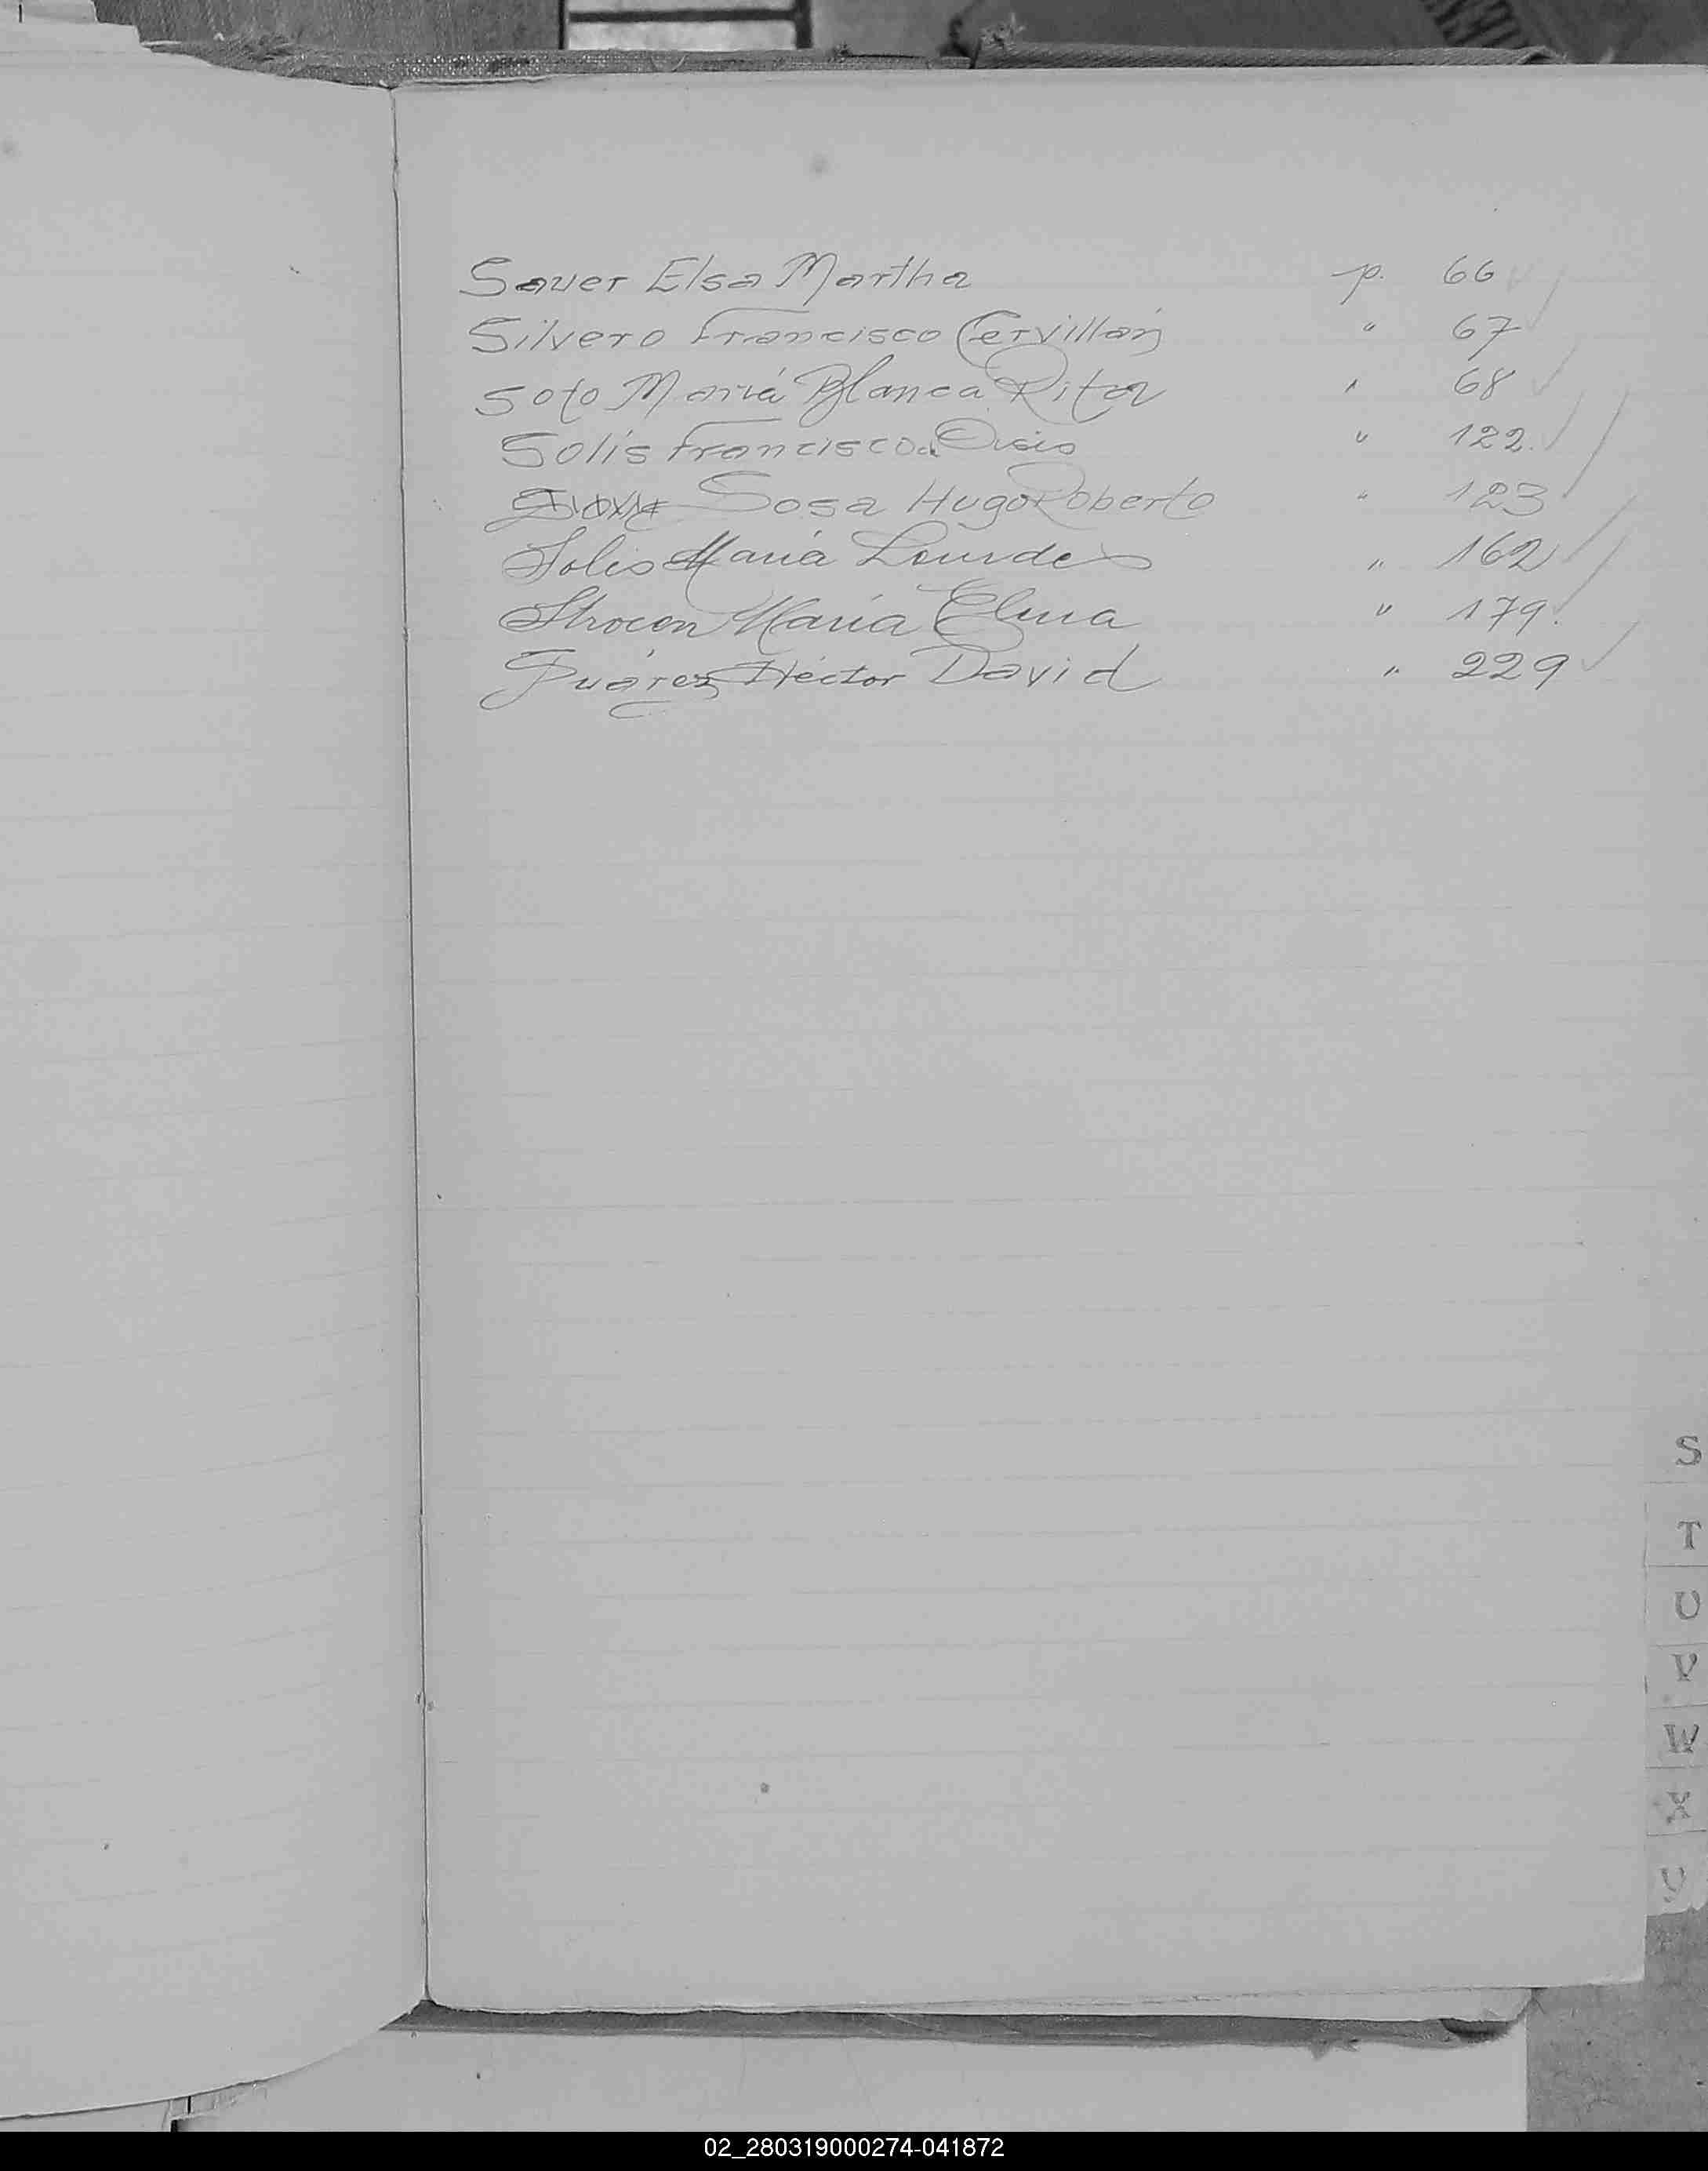 Sauer Elsa Martha p. 66
Silvero Francisco Cervillán " 67
Soto María Blanca Rita " 68
Solís Francisco Osis " 122.
Sosa Hugo Roberto " 123
Solis María Lourdes " 162
María Elena " 179.
Suárez Héctor David " 229
S
T
U
V
W
X
02_280319000274-041872